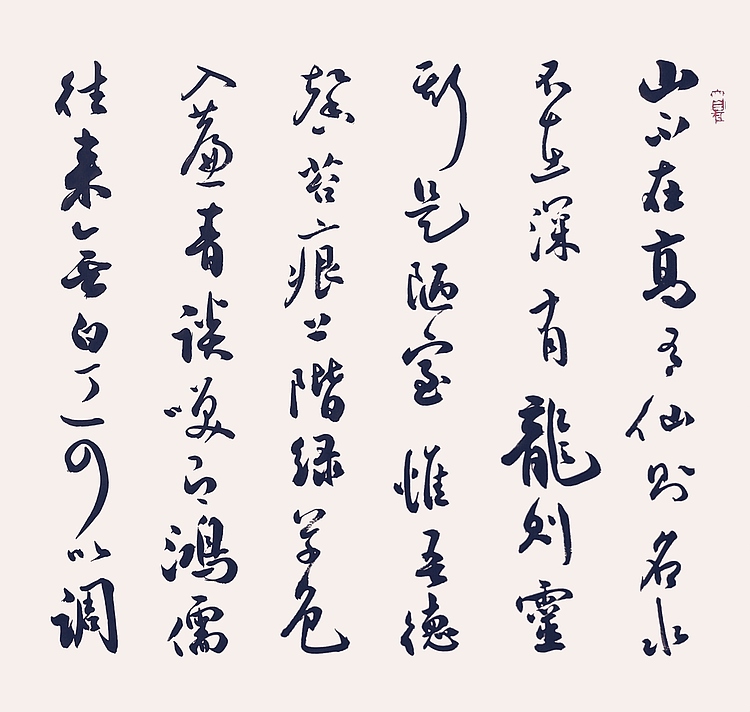 山不在高有仙則名水
不在深有龍則靈
斯是陋室惟吾德
馨苔痕上階綠草色
入簾青談咲有鴻儒
往來無白丁可以調